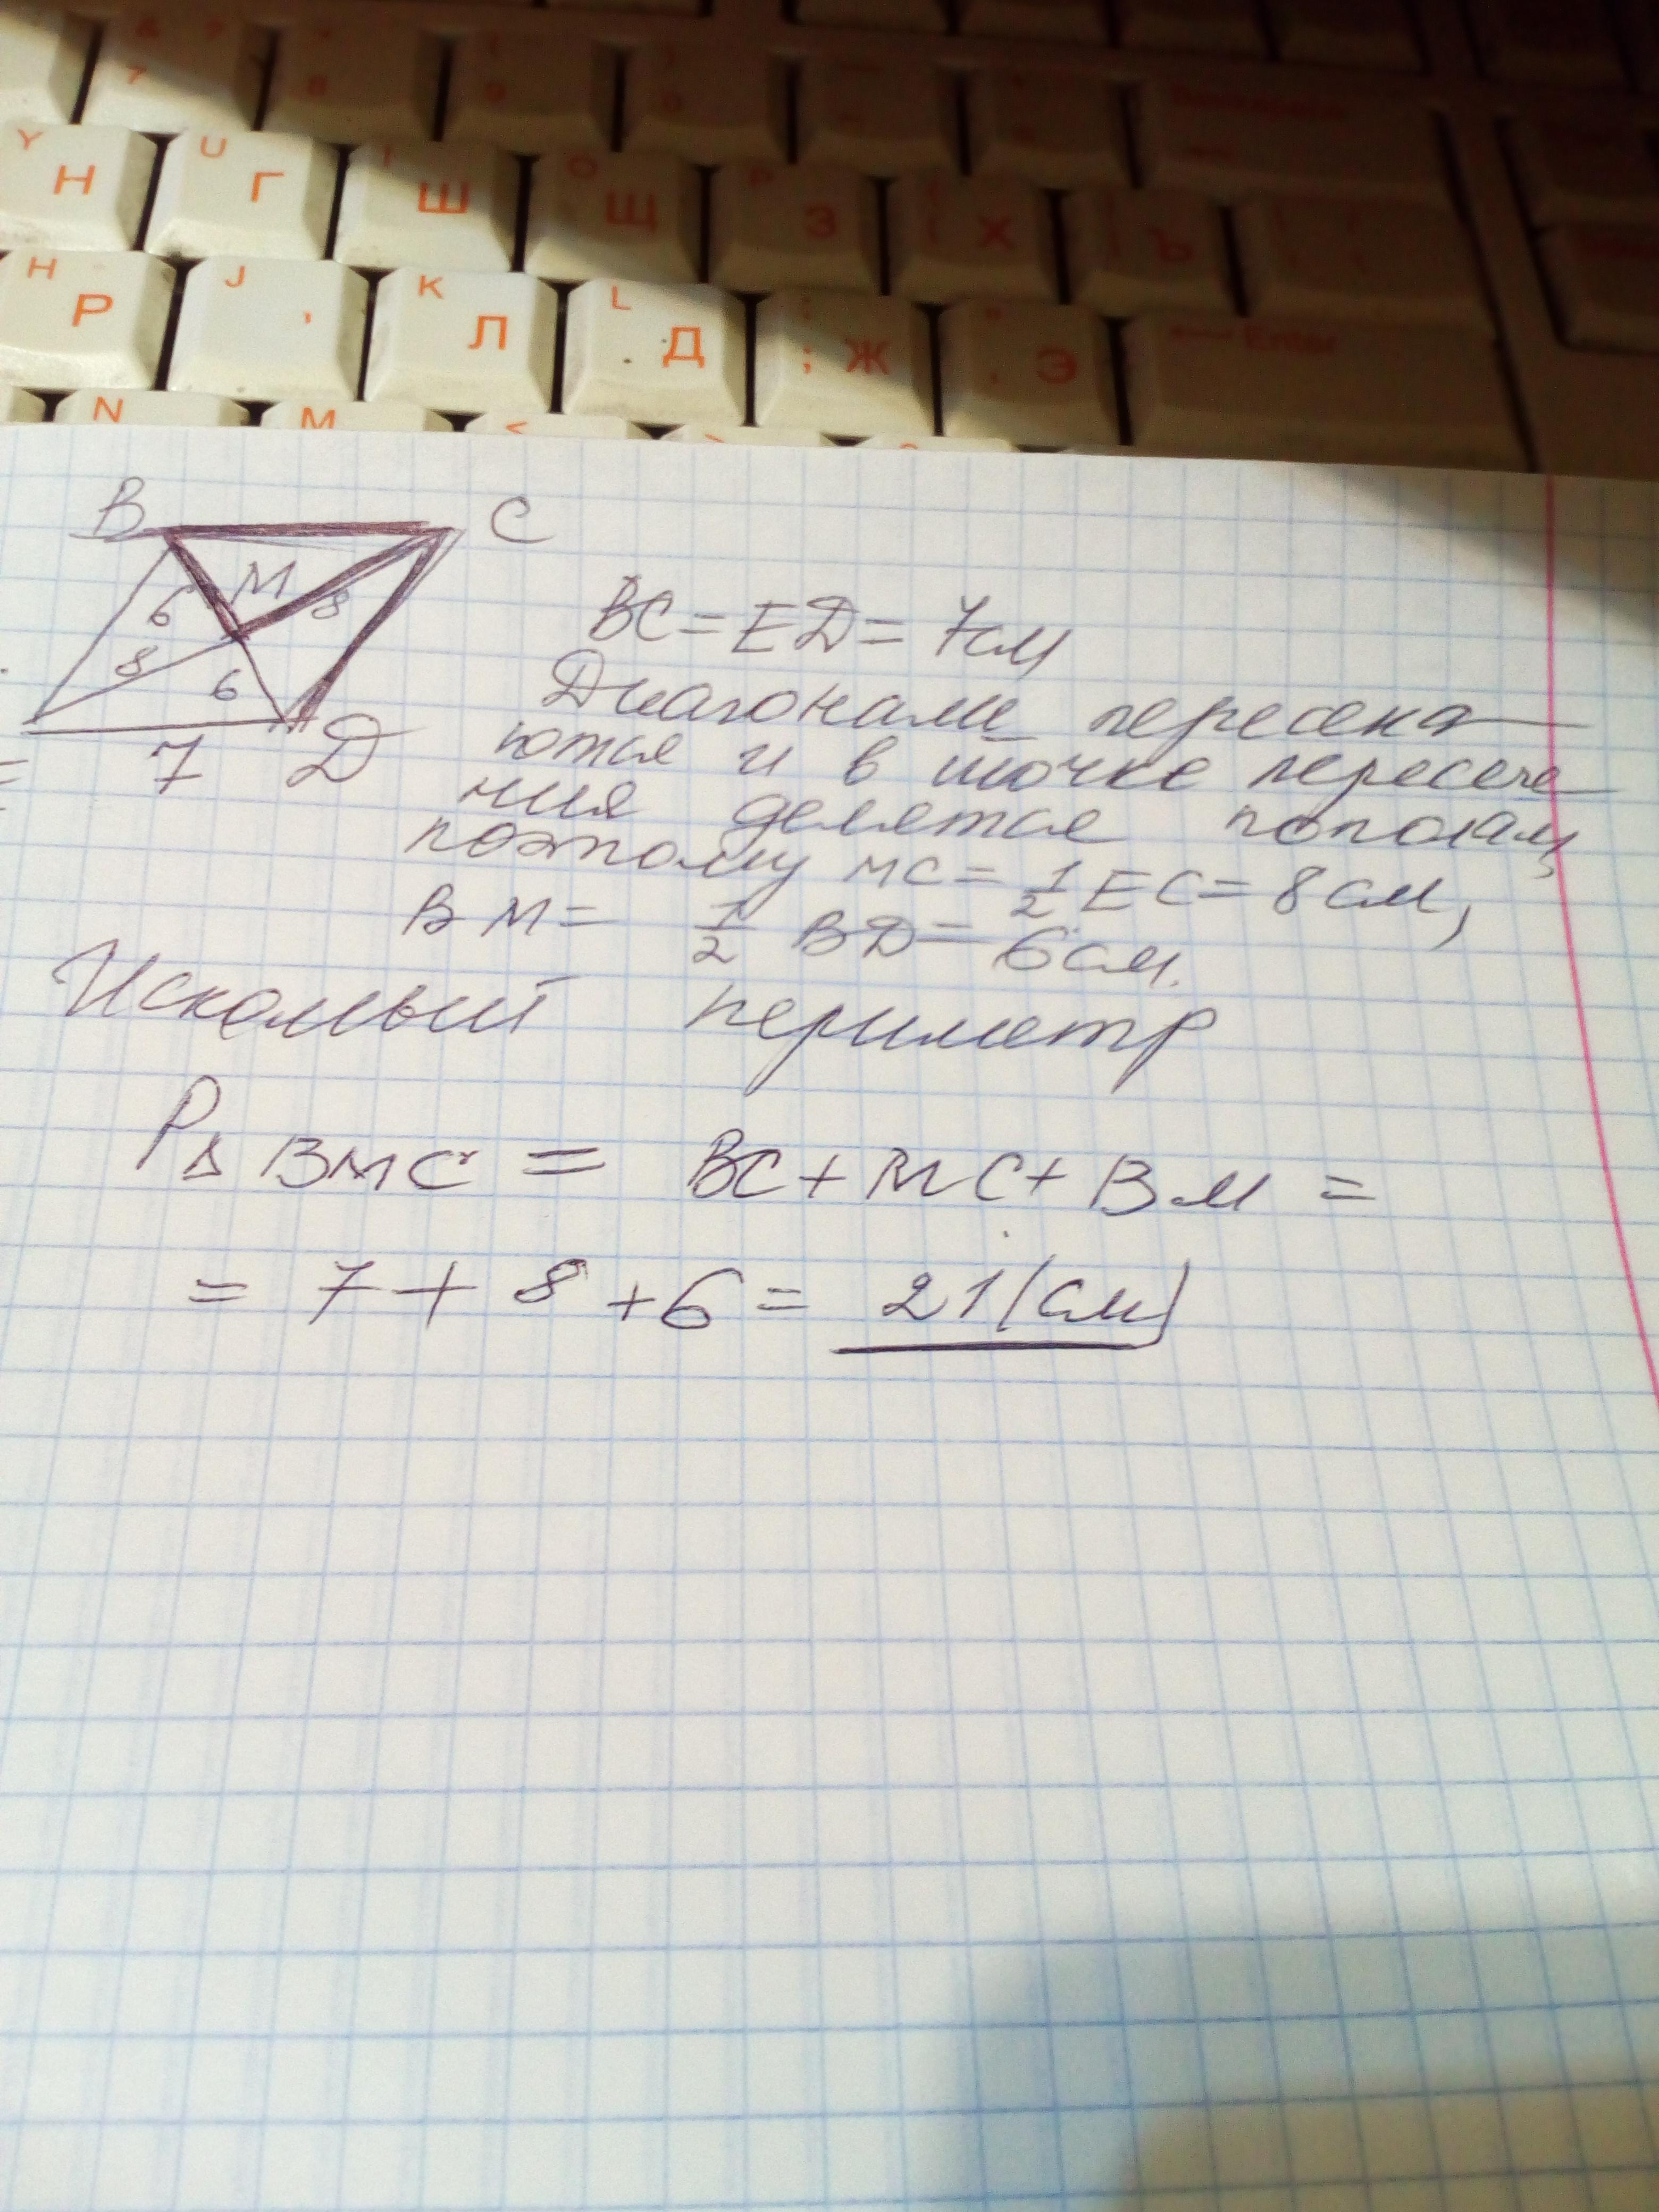 Y Н U Г I Ш O Щ P З { [ Х } ] Ъ
H Р J К Л L Д : ; Ж " ' Э Enter
N M < >
В С
6 М 8
8 6
7 D
BC = ED = 7 см
Диагонали пересека-
ются и в точке пересече-
ния делятся пополам,
поэтому MC = 1/2 EC = 8 см,
BM = 1/2 BD = 6 см.
Искомый периметр
P△ BMC = BC + MC + BM =
= 7 + 8 + 6 = 21 (см)